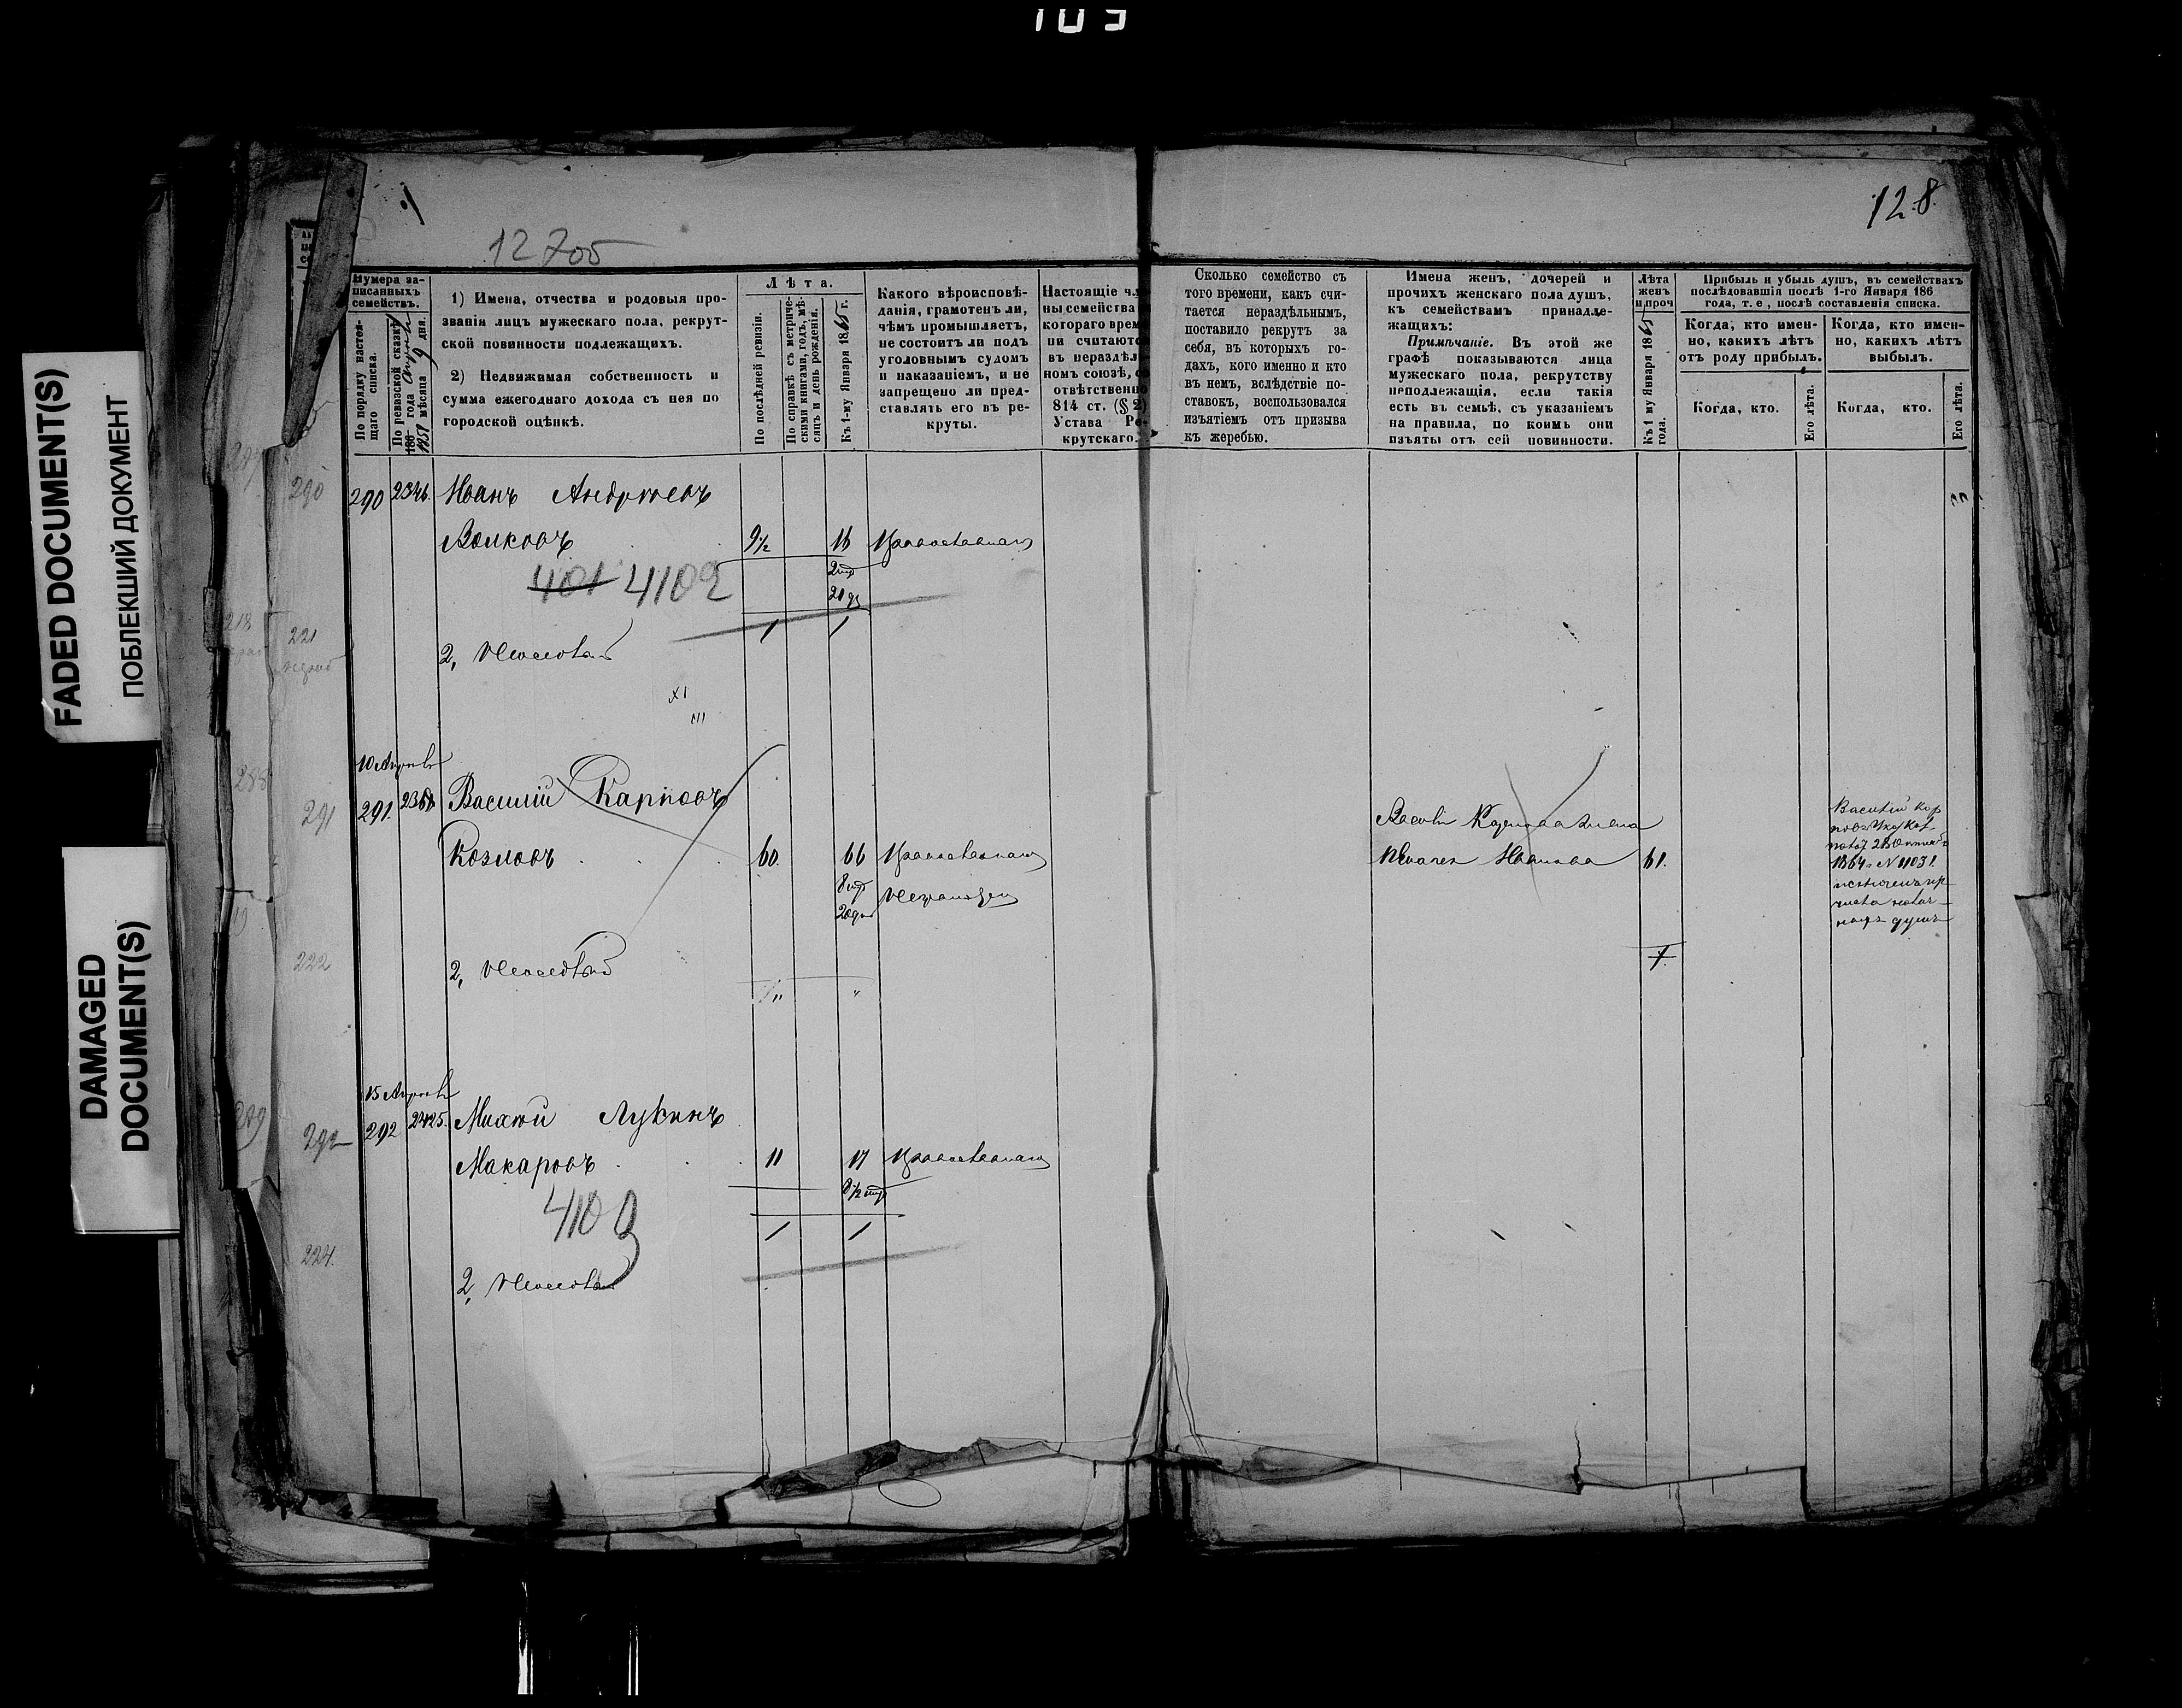 103
128.
12 705
FADED DOCUMENT(S)
ПОБЛЕКШИЙ ДОКУМЕНТ
DAMAGED
DOCUMENT(S)
Нумера за-
писанныхъ
семействъ.
По порядку настоя-
щаго списка.
По ревизской сказкѣ
186 года
1858 мѣсяца 9 дня.
1) Имена, отчества и родовыя про-
званія лицъ мужескаго пола, рекрут-
ской повинности подлежащихъ.
2) Недвижимая собственность и
сумма ежегоднаго дохода съ нея по
городской оцѣнкѣ.
Лѣта.
По послѣдней ревизіи.
По справкѣ съ метриче-
скими книгами, годъ, мѣ-
сяцъ и день рожденія.
Къ 1-му Января 1865 г.
Какого вѣроисповѣ-
данія, грамотенъ ли,
чѣмъ промышляетъ,
не состоитъ ли подъ
уголовнымъ судомъ
и наказаніемъ, и не
запрещено ли пред-
ставлять его въ ре-
круты.
Настоящіе
ны семейства
котораго врем
ни считают
въ нераздѣл
номъ союзѣ,
отвѣтственно
814 ст. (§ 2)
Устава Ре-
крутскаго.
Сколько семейство съ
того времени, какъ счи-
тается нераздѣльнымъ,
поставило рекрутъ за
себя, въ которыхъ го-
дахъ, кого именно и кто
въ немъ, вслѣдствіе по-
ставокъ, воспользовался
изъятіемъ отъ призыва
къ жеребью.
Имена женъ, дочерей и
прочихъ женскаго пола душъ,
къ семействамъ принадле-
жащихъ:
Примѣчаніе. Въ этой же
графѣ показываются лица
мужескаго пола, рекрутству
неподлежащія, если такія
есть въ семьѣ, съ указаніемъ
на правила, по коимъ они
изъяты отъ сей повинности.
Лѣта
женъ
и проч
Къ 1 му Января 1865
года.
Прибыль и убыль душъ, въ семействахъ
послѣдовавшія послѣ 1-го Января 186
года, т. е., послѣ составленія списка.
Когда, кто имен-
но, какихъ лѣтъ
отъ роду прибылъ.
Когда, кто имен-
но, какихъ лѣтъ
выбылъ.
Когда, кто.
Его лѣта.
Когда, кто.
Его лѣта.
290 290 2346. Иванъ Андреевъ
Волковъ 9½ 16 Православнаго
401 4102
1 1
221
2,
XI
III
10 Апрѣля
291 291. 236 Василій Карповъ
Козловъ 60. 66 Православнаго
Неграмотенъ
Василія Карпова жена
Иванова 61.
Василій Кар
повъ
1864 г. N 11031.
душъ
222
2,
1
15 Апрѣля
292 292 2425. Михей Лукинъ
Макаровъ 11 17 Православнаго
8½
4103
1 1
224.
2,